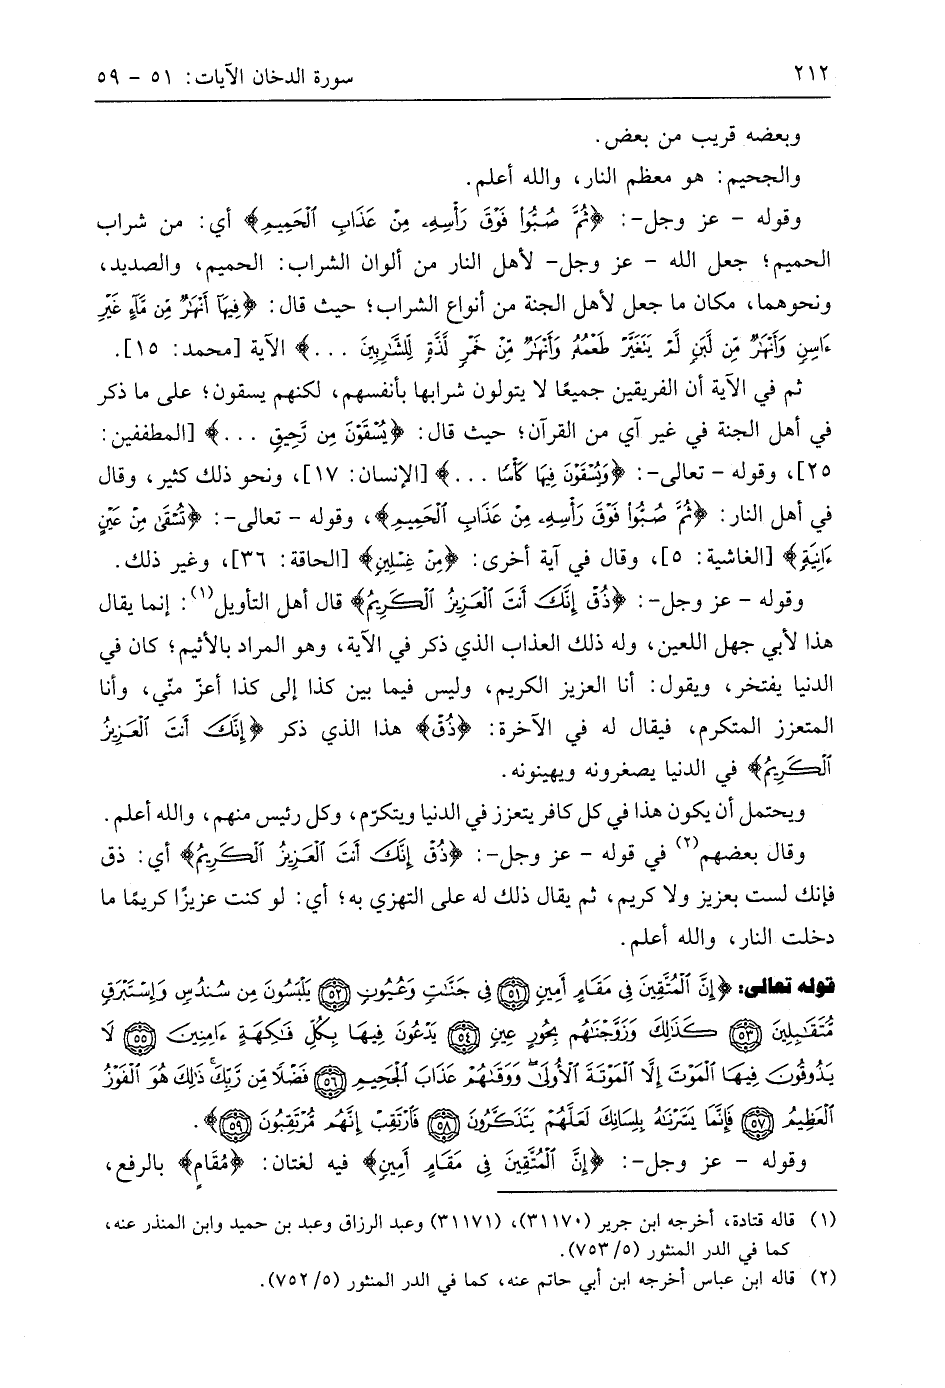 ٢١٢ سورة الدخان الآيات: ٥١ - ٥٩
وبعضه قريب من بعض.
والجحيم: هو معظم النار، والله أعلم.
وقوله - عز وجل-: ﴿ثُمَّ صُبُّوا۟ فَوْقَ رَأْسِهِۦ مِنْ عَذَابِ ٱلْحَمِيمِ﴾ أي: من شراب
الحميم؛ جعل الله - عز وجل- لأهل النار من ألوان الشراب: الحميم، والصديد،
ونحوهما، مكان ما جعل لأهل الجنة من أنواع الشراب؛ حيث قال: ﴿فِيهَآ أَنْهَٰرٌ مِّن مَّآءٍ غَيْرِ
ءَاسِنٍ وَأَنْهَٰرٌ مِّن لَّبَنٍ لَّمْ يَتَغَيَّرْ طَعْمُهُۥ وَأَنْهَٰرٌ مِّنْ خَمْرٍ لَّذَّةٍ لِّلشَّٰرِبِينَ ...﴾ الآية [محمد: ١٥].
ثم في الآية أن الفريقين جميعًا لا يتولون شرابها بأنفسهم، لكنهم يسقون؛ على ما ذكر
في أهل الجنة في غير آي من القرآن؛ حيث قال: ﴿يُسْقَوْنَ مِن رَّحِيقٍ ...﴾ [المطففين:
٢٥]، وقوله - تعالى-: ﴿وَيُسْقَوْنَ فِيهَا كَأْسًا ...﴾ [الإنسان: ١٧]، ونحو ذلك كثير، وقال
في أهل النار: ﴿ثُمَّ صُبُّوا۟ فَوْقَ رَأْسِهِۦ مِنْ عَذَابِ ٱلْحَمِيمِ﴾، وقوله - تعالى-: ﴿تُسْقَىٰ مِنْ عَيْنٍ
ءَانِيَةٍ﴾ [الغاشية: ٥]، وقال في آية أخرى: ﴿مِنْ غِسْلِينٍ﴾ [الحاقة: ٣٦]، وغير ذلك.
وقوله - عز وجل-: ﴿ذُقْ إِنَّكَ أَنتَ ٱلْعَزِيزُ ٱلْكَرِيمُ﴾ قال أهل التأويل(١): إنما يقال
هذا لأبي جهل اللعين، وله ذلك العذاب الذي ذكر في الآية، وهو المراد بالأثيم؛ كان في
الدنيا يفتخر، ويقول: أنا العزيز الكريم، وليس فيما بين كذا إلى كذا أعزّ منّي، وأنا
المتعزز المتكرم، فيقال له في الآخرة: ﴿ذُقْ﴾ هذا الذي ذكر ﴿إِنَّكَ أَنتَ ٱلْعَزِيزُ
ٱلْكَرِيمُ﴾ في الدنيا يصغرونه ويهينونه.
ويحتمل أن يكون هذا في كل كافر يتعزز في الدنيا ويتكرّم، وكل رئيس منهم، والله أعلم.
وقال بعضهم(٢) في قوله - عز وجل-: ﴿ذُقْ إِنَّكَ أَنتَ ٱلْعَزِيزُ ٱلْكَرِيمُ﴾ أي: ذق
فإنك لست بعزيز ولا كريم، ثم يقال ذلك له على التهزي به؛ أي: لو كنت عزيزًا كريمًا ما
دخلت النار، والله أعلم.
قوله تعالى: ﴿إِنَّ ٱلْمُتَّقِينَ فِى مَقَامٍ أَمِينٍ ٥١ فِى جَنَّٰتٍ وَعُيُونٍ ٥٢ يَلْبَسُونَ مِن سُندُسٍ وَإِسْتَبْرَقٍ
مُّتَقَٰبِلِينَ ٥٣ كَذَٰلِكَ وَزَوَّجْنَٰهُم بِحُورٍ عِينٍ ٥٤ يَدْعُونَ فِيهَا بِكُلِّ فَٰكِهَةٍ ءَامِنِينَ ٥٥ لَا
يَذُوقُونَ فِيهَا ٱلْمَوْتَ إِلَّا ٱلْمَوْتَةَ ٱلْأُولَىٰ وَوَقَىٰهُمْ عَذَابَ ٱلْجَحِيمِ ٥٦ فَضْلًا مِّن رَّبِّكَ ذَٰلِكَ هُوَ ٱلْفَوْزُ
ٱلْعَظِيمُ ٥٧ فَإِنَّمَا يَسَّرْنَٰهُ بِلِسَانِكَ لَعَلَّهُمْ يَتَذَكَّرُونَ ٥٨ فَٱرْتَقِبْ إِنَّهُم مُّرْتَقِبُونَ ٥٩﴾.
وقوله - عز وجل-: ﴿إِنَّ ٱلْمُتَّقِينَ فِى مَقَامٍ أَمِينٍ﴾ فيه لغتان: ﴿مُقَامٍ﴾ بالرفع،
(١) قاله قتادة، أخرجه ابن جرير (٣١١٧٠)، (٣١١٧١) وعبد الرزاق وعبد بن حميد وابن المنذر عنه،
كما في الدر المنثور (٥/ ٧٥٣).
(٢) قاله ابن عباس أخرجه ابن أبي حاتم عنه، كما في الدر المنثور (٥/ ٧٥٢).